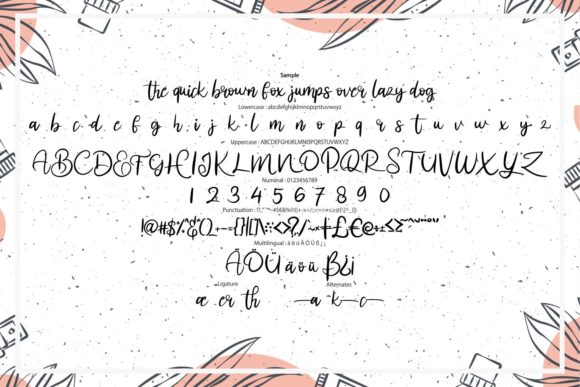 Sample
the quick brown fox jumps over lazy dog
Lowercase : abcdefghijklmnopqrstuvwxyz
a b c d e f g h i j k l m n o p q r s t u v w x y z
Uppercase : ABCDEFGHIJKLMNOPQRSTUVWXYZ
ABCDEFGHIJKLMNOPQRSTUVWXYZ
Numeral : 0123456789
1 2 3 4 5 6 7 8 9 0
Punctuation :
Multilingual : ä ö ü Ä Ö Ü ß ¿ ¡
ÄÖÜ äöü ß¿¡
Ligature
Alternates
æ er th
a k c